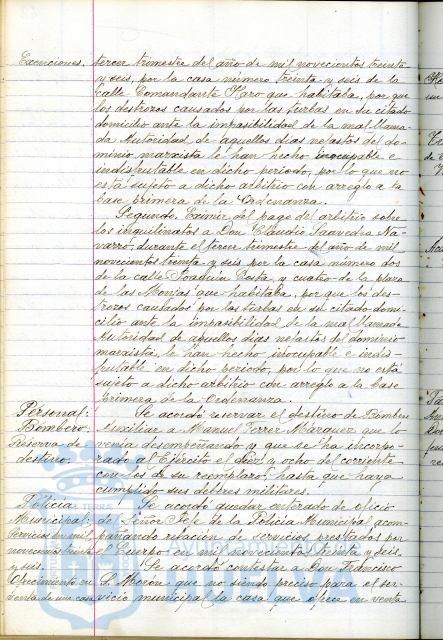 Exenciones.
tercer trimestre del año de mil novecientos treinta
y seis, por la casa número treinta y seis de la
calle Comandante Haro que habitaba, por que
los destrozos causados por las turbas en su citado
domicilio ante la impasibilidad de la mal llama-
da Autoridad de aquellos días nefastos del do-
minio marxista le han hecho inocupable e
indisfrutable en dicho periodo, por lo que no
está sujeto a dicho arbitrio con arreglo a la
base primera de la Ordenanza.
Segundo. Eximir del pago del arbitrio sobre
los inquilinatos a Don Claudio Saavedra Na-
varro, durante el tercer trimestre del año de mil
novecientos treinta y seis por la casa número dos
de la calle Joaquín Costa, y cuatro de la plaza
de las Monjas que habitaba, por que los des-
trozos causados por las turbas en su citado domi-
cilio ante la impasibilidad de la mal llamada
Autoridad de aquellos días nefastos del dominio
marxista, le han hecho inocupable e indis-
frutable en dicho periodo, por lo que no está
sujeto a dicho arbitrio con arreglo a la base
primera de la Ordenanza.
Personal:
Bombero:
Reserva de
destino.
Se acordó reservar el destino de Bombero
Auxiliar a Manuel Ferrer Márquez que lo
venía desempeñando y que se ha incorpo-
rado al Ejército el diez y ocho del corriente
con los de su reemplazo, hasta que haya
cumplido sus deberes militares.
Policía
Municipal:
Servicios en mil
novecientos treinta
y seis.
Se acordó quedar enterado de oficio
del Señor Jefe de la Policía Municipal acom-
pañando relación de servicios prestados por
el Cuerpo en mil novecientos treinta y seis.
Ofrecimiento en
venta de una casa
Se acordó contestar a Don Francisco
S. Morón que no siendo preciso para el ser-
vicio municipal la casa que ofrece en venta